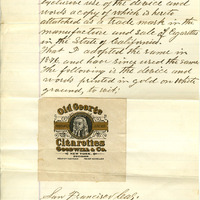 exclusive use of the device and
words a copy of which is hereto
attached as a trade mark in the
manufacture and sale of Cigarettes
in the State of California.
That I adopted the same in
and have since used the same
The following is the device and
words printed in gold on white
ground, to wit:
Old
Cigarettes
Goodwin & Co.
New York
San Francisco Cal.